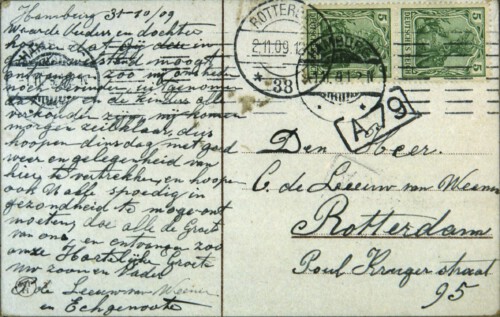 Hamburg 31-10/09
Waarde Ouders en dochter
hopen dat bij deze in
gezondheid moogt
zoo
noch uitgenomen
en de kinders alle
verkouder zijn wij komen
morgen zeilklaar, dus
hoopen dinsdag met goed
weer en gelegenheid van
hier te vertrekken, en hoopen
ook U alle spoedig in
gezondheid te mogen ont
moeten, doe alle de Groete
van ons, en ontvangen zoo
onze Hartelijke Groete
uw zoon en Vader
C de Leeuw van Weenen
en Echtgenoote
ROTTERDAM
2.11.09. 12
* 38
HAMBURG
5
DEUTSCHES REICH
5
5
DEUTSCHES REICH
5
A 79
Den Heer.
C. de Leeuw van Weenen
Rotterdam
Poul Kruger straat
95